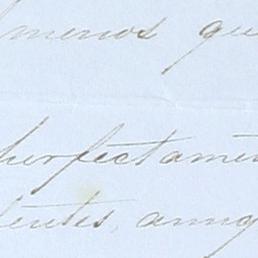 menos qu
perfectamen
tentes, aunq